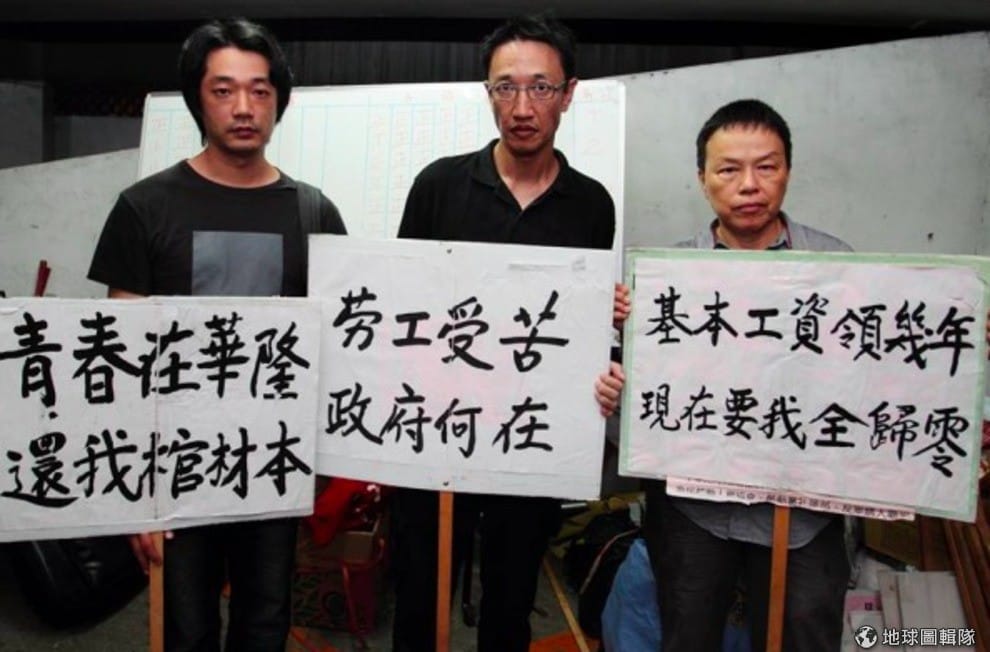 青春在華隆
還我棺材本
劳工受苦
政府何在
基本工資領幾年
現在要我全歸零
地球圖輯隊